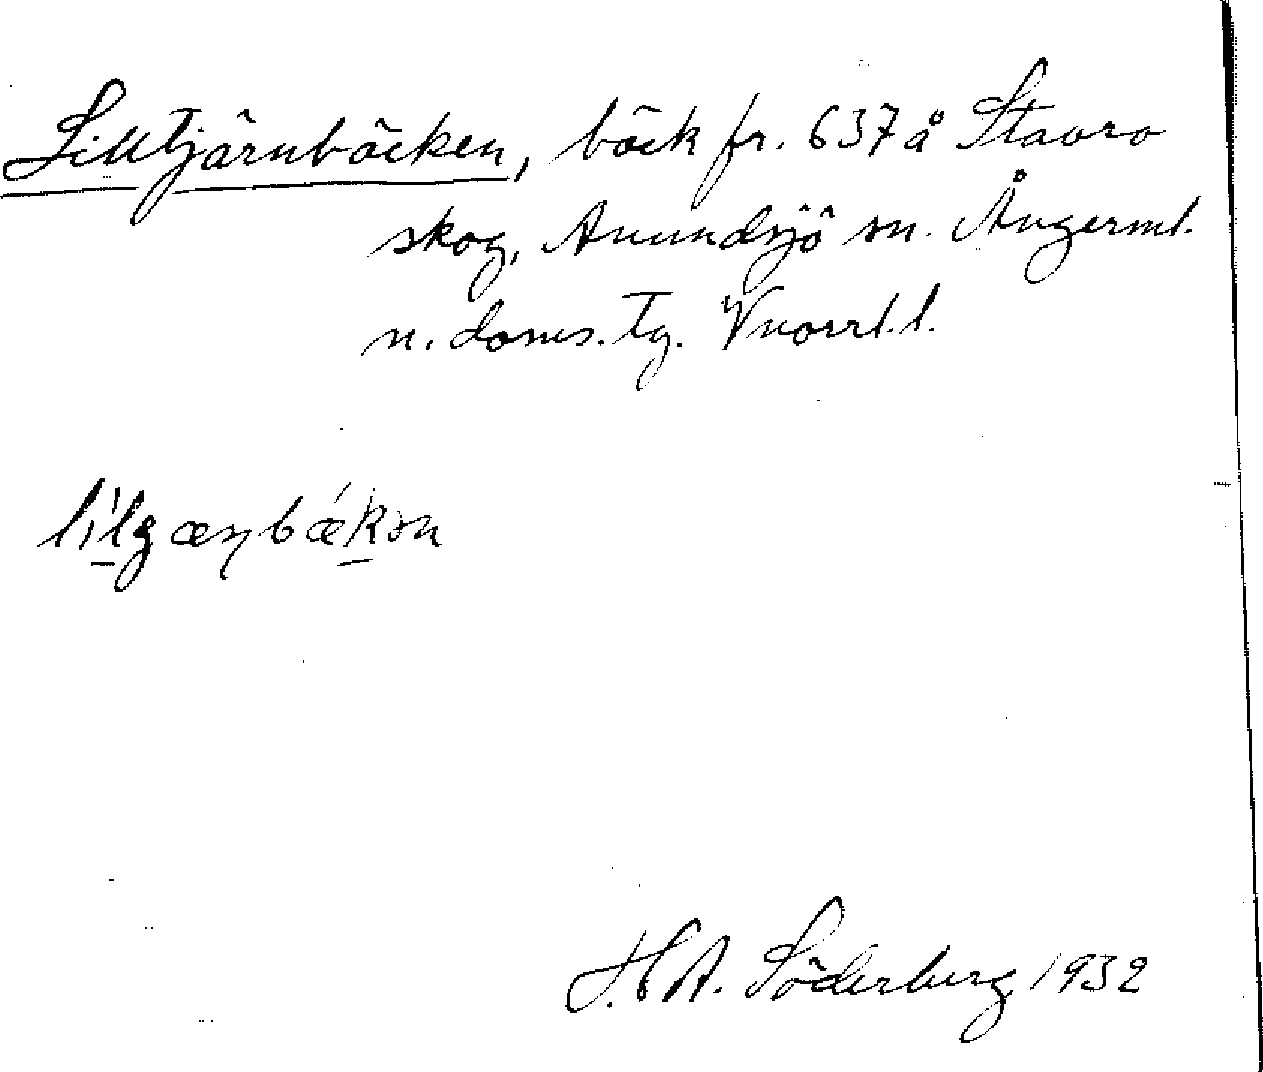 Lilltjärnbäcken, bäck fr. 637 å Stavro
skog, Anundsjö sn. Ångerml.
n. doms. tg. Vnorrl. l.
H A. Söderberg 1932